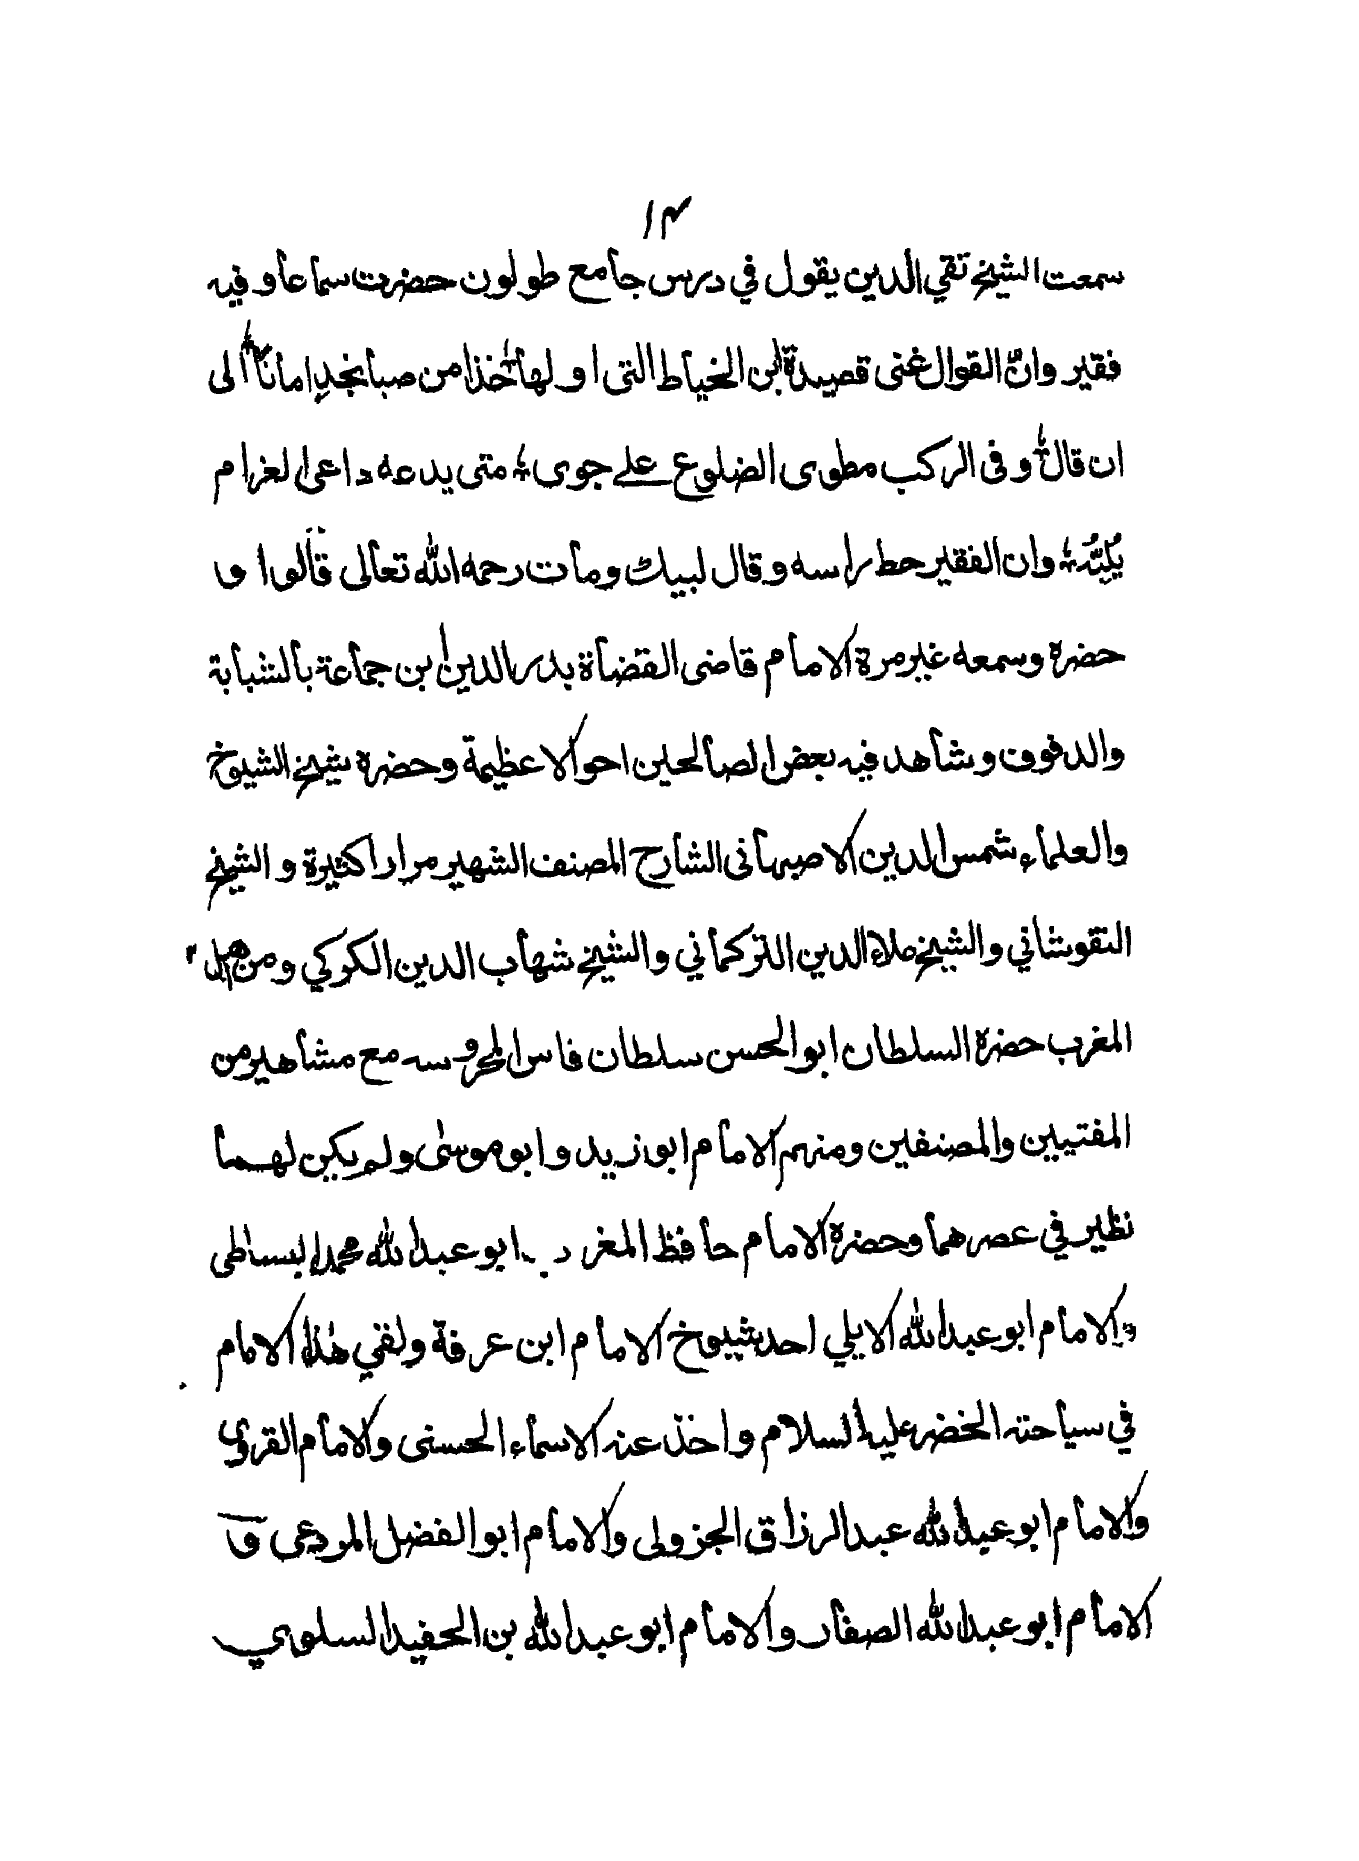 ١٣
سمعت الشيخ تقي الدين يقول في درس جامع طولون حضرت سماعا وفيه
فقير وانّ القوال غنى قصيدة ابن الخياط التى اولها خذا من صبا نجدٍ امانا الى
ان قال وفى الركب مطوى الضلوع على جوى متى يدعه داعى الغرام
يُلبِّهُ وان الفقير حط راسه وقال لبيك ومات رحمه الله تعالى قالوا و
حضره وسمعه غير مرة الامام قاضى القضاة بدر الدين ابن جماعة بالشبابة
والدفوف وشاهد فيه بعض الصالحين احوالا عظيمة وحضره شيخ الشيوخ
والعلماء شمس الدين الاصبهانى الشارح المصنف الشهير مرارا كثيرة و الشيخ
النقوشاني والشيخ علاء الدين التركماني والشيخ شهاب الدين الكركي ومن اهل
المغرب حضره السلطان ابو الحسن سلطان فاس المحروسه مع مشاهير من
المفتيين والمصنفين ومنهم الامام ابو زيد وابو موسى ولم يكن لهما
نظير في عصرهما وحضره الامام حافظ المغرب ابو عبد الله محمد البساطى
والامام ابو عبد الله الايلي احد شيوخ الامام ابن عرفة ولقي هذا الامام
في سياحته الخضر عليه السلام واخذ عنه الاسماء الحسنى والامام القروى
والامام ابو عبد الله عبد الرزاق الجزولى والامام ابو الفضل المردعى و
الامام ابو عبد الله الصفار والامام ابو عبد الله بن الحفيد السلوي